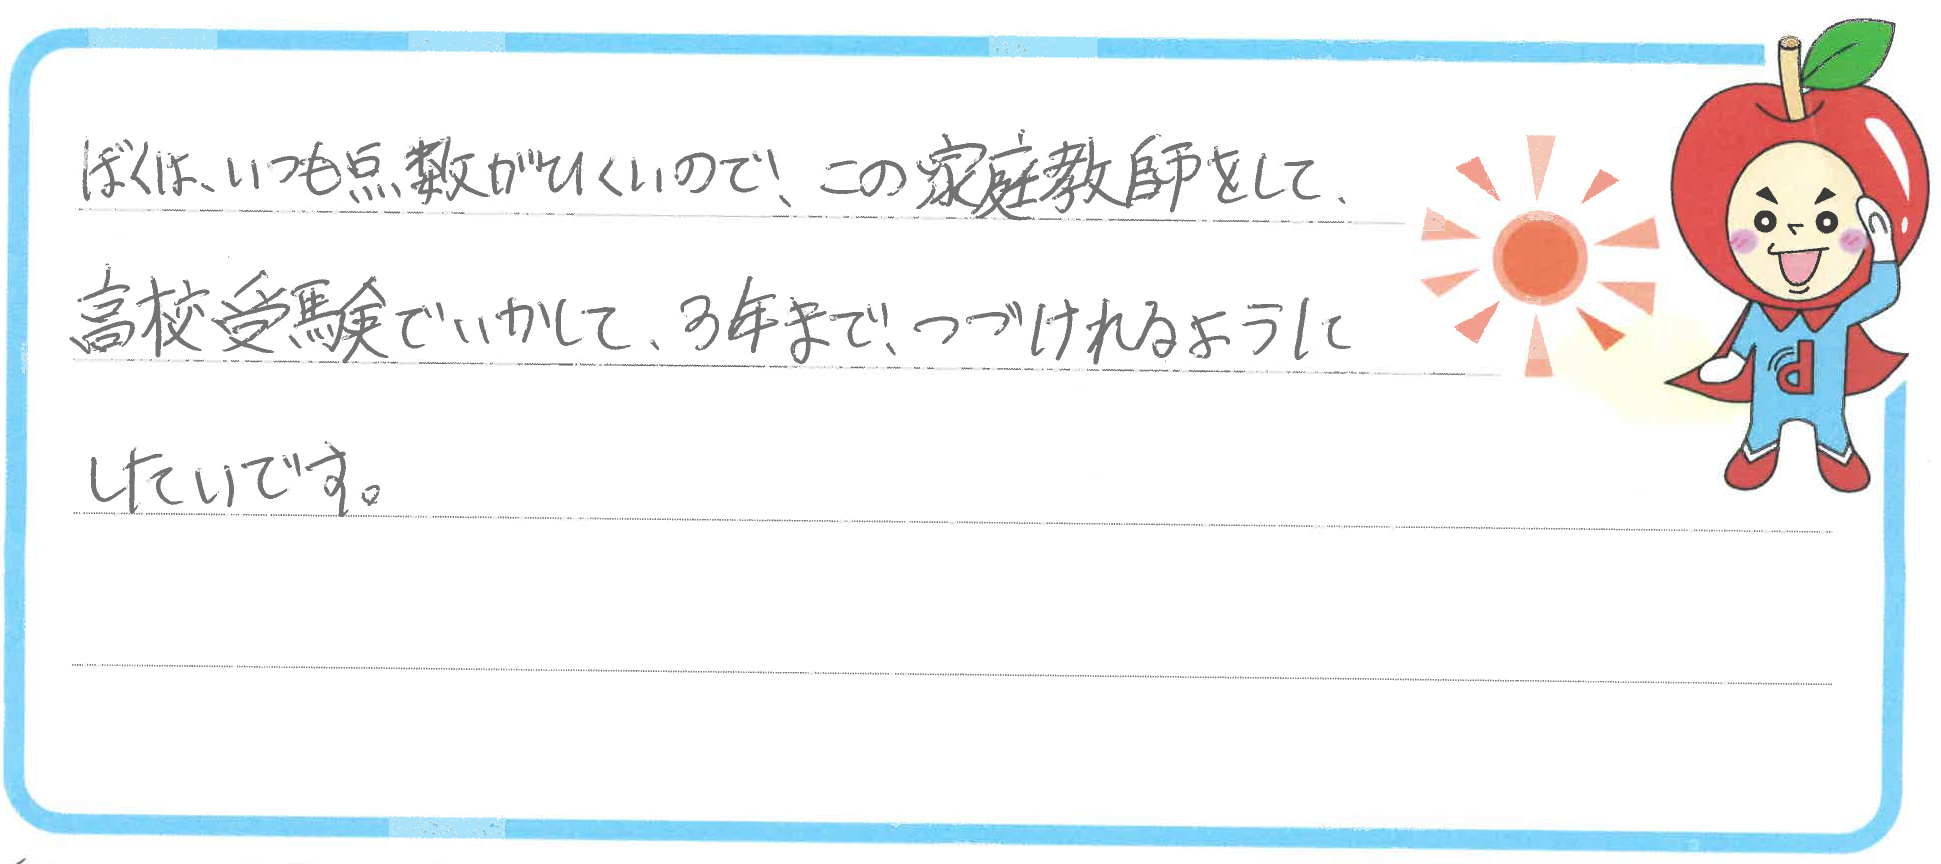 ぼくは、いつも点数がひくいので、この家庭教師をして、
高校受験でいかして、3年まで、つづけれるように
したいです。